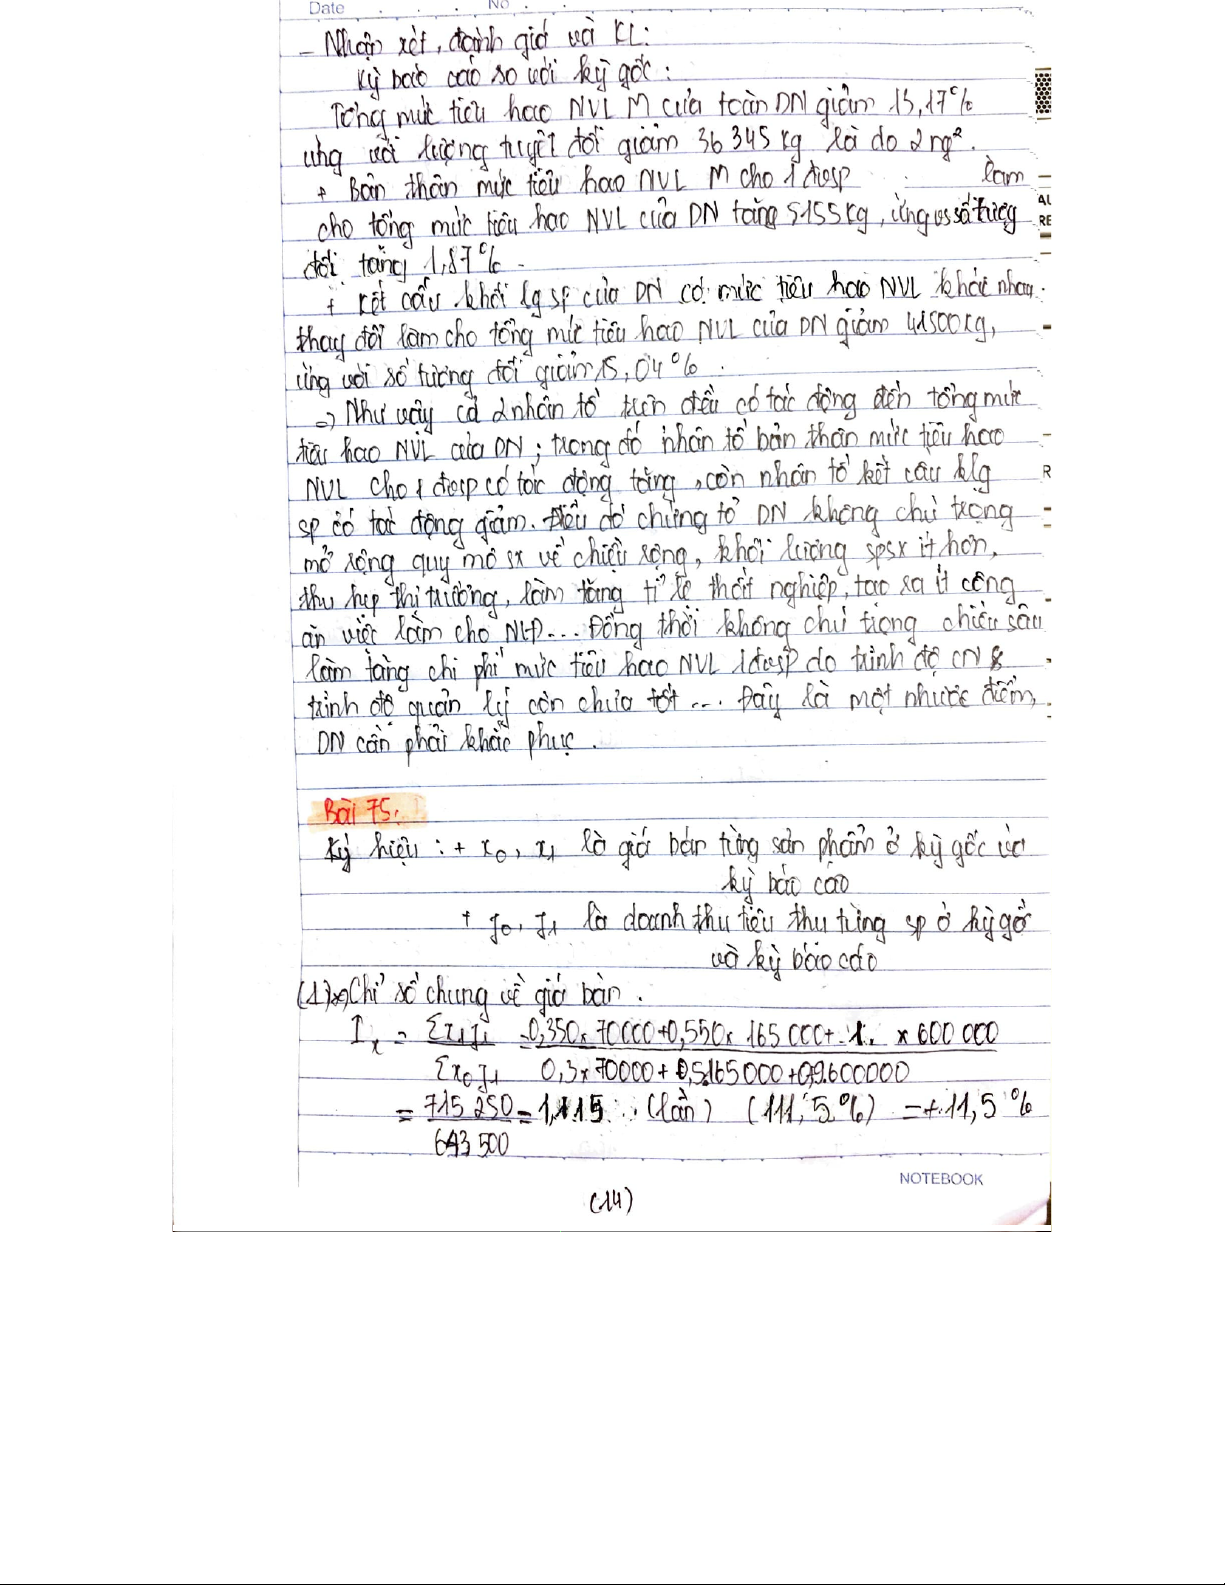 Date No
- Nhận xét, đánh giá và KL:
Kỳ báo cáo so với kỳ gốc:
Tổng mức tiêu hao NVL M của toàn DN giảm 13,17%
ứng với lượng tuyệt đối giảm 36 345 kg là do 2 ng².
+ Bản thân mức tiêu hao NVL M cho 1 đvsp làm
cho tổng mức tiêu hao NVL của DN tăng 5155 kg, ứng vs số tương
đối tăng 1,87%.
+ Kết cấu khối lg sp của DN có mức tiêu hao NVL khác nhau
thay đổi làm cho tổng mức tiêu hao NVL của DN giảm 41500 kg,
ứng với số tương đối giảm 15,04%.
=> Như vậy cả 2 nhân tố trên đều có tác động đến tổng mức
tiêu hao NVL của DN; trong đó nhân tố bản thân mức tiêu hao
NVL cho 1 đvsp có tác động tăng, còn nhân tố kết cấu klg
sp có tác động giảm. Điều đó chứng tỏ DN không chú trọng
mở rộng quy mô sx về chiều rộng, khối lượng spsx ít hơn,
thu hẹp thị trường, làm tăng tỉ lệ thất nghiệp, tạo ra ít công
ăn việc làm cho NLĐ... Đồng thời không chú trọng chiều sâu
làm tăng chi phí mức tiêu hao NVL 1 đvsp do trình độ CN &
trình độ quản lý còn chưa tốt ... Đây là một nhược điểm,
DN cần phải khắc phục.
Bài 75.
Ký hiệu: + x₀, x₁ là giá bán từng sản phẩm ở kỳ gốc và
kỳ báo cáo
+ y₀, y₁ là doanh thu tiêu thụ từng sp ở kỳ gố
và kỳ báo cáo
(1) Chỉ số chung về giá bán.
Iₓ = Σx₁y₁ = 0,350 x 70000 + 0,550 x 165 000 + 1. x 600 000
Σx₀y₁ 0,3 x 70000 + 0,5.165000 + 0,9.600000
= 715 250 = 1,115 (lần) (111,5%) = + 11,5%
643 500
NOTEBOOK
(14)